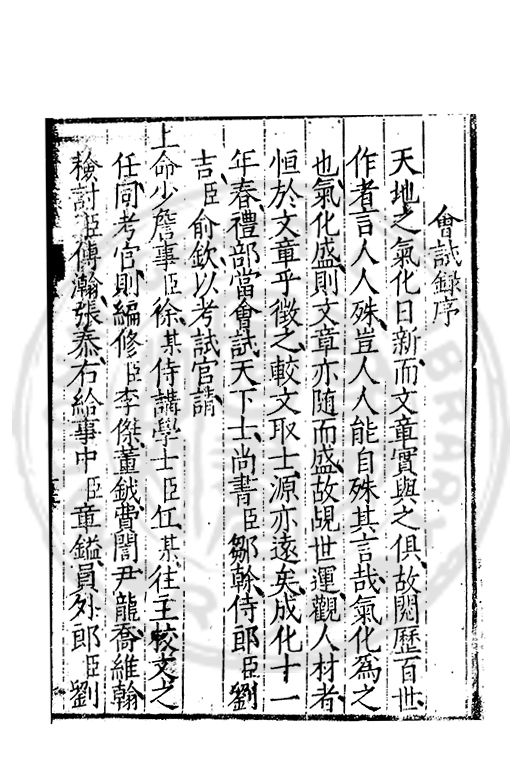 會試録序
天地之氣化日新而文章實與之俱故閱歷百世
作者言人人殊豈人人能自殊其言哉氣化爲之
也氣化盛則文章亦隨而盛故覘世運觀人材者
恒於文章乎徵之較文取士源亦遠矣成化十一
年春禮部當會試天下士尚書臣鄒榦侍郎臣劉
吉臣俞欽以考試官請
上命少詹事臣徐某侍講學士臣丘某往主校文之
任同考官則編修臣李傑董鉞費誾尹龍喬維翰
檢討臣傅瀚張泰右給事中臣章鎰員外郎臣劉